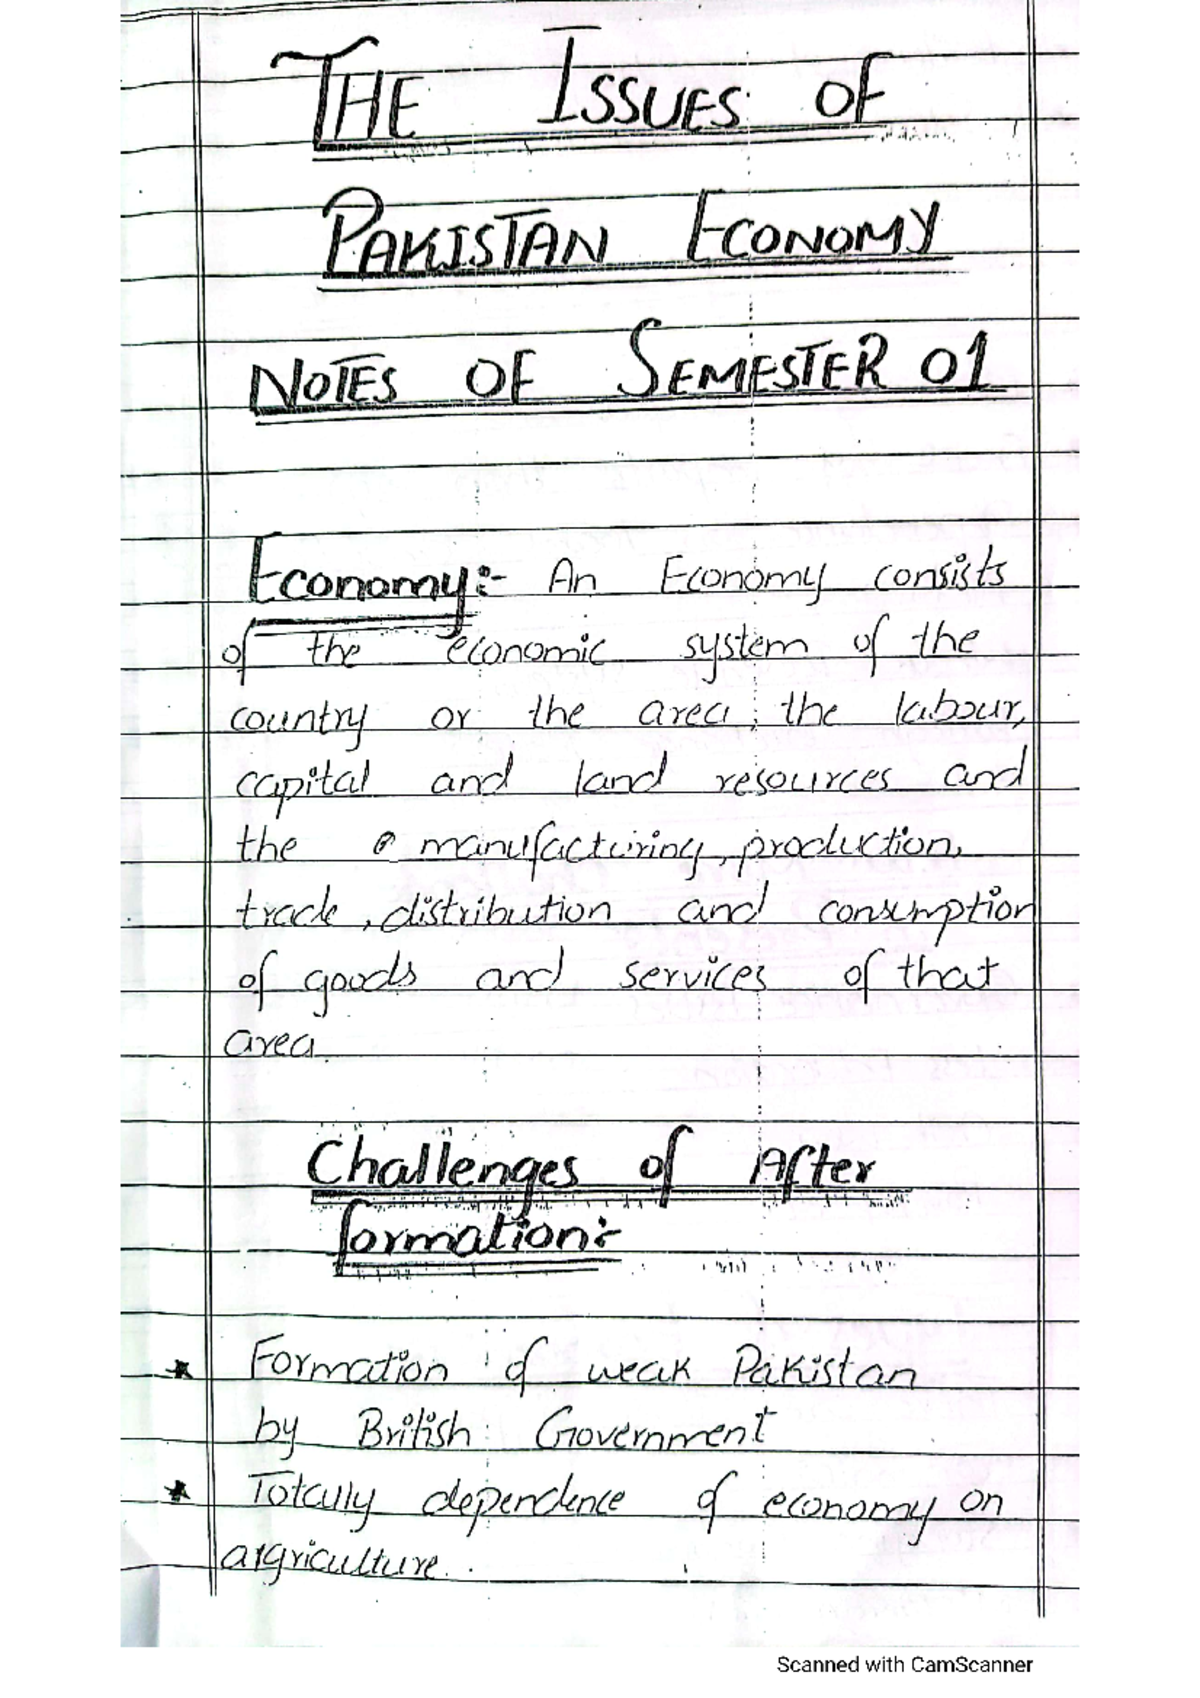 THE ISSUES OF
PAKISTAN ECONOMY
NOTES OF SEMESTER 01
Economy:- An Economy consists
of the economic system of the
country or the area, the labour,
capital and land resources and
the manufacturing, production,
trade, distribution and consumption
of goods and services of that
area.
Challenges of After
formation:-
★ Formation of weak Pakistan
by British Government
★ Totally dependence of economy on
argriculture.
Scanned with CamScanner